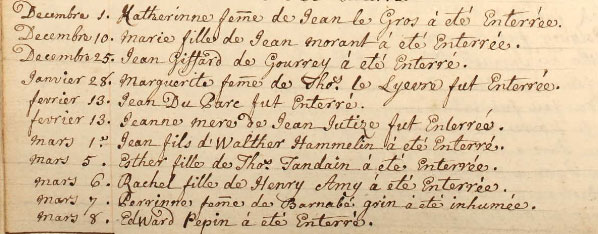 Decembre 1. Katherinne fem̃e de Jean le Gros á été Enterrée.
Decembre 10. Marie fille de Jean morant á été Enterrée.
Decembre 25. Jean Giffard de Gourrey á été Enterré.
Janvier 28. Marguerite fem̃e de Thos. le Lyevre fut Enterrée.
fevrier 13. Jean Du Parc fut Enterré.
fevrier 13. Jeanne mere de Jean Jutize fut Enterrée.
mars 1r. Jean fils d'Walther Hammelin á été Enterré.
mars 5. Esther fille de Thos. Tandain á été Enterrée.
mars 6. Rachel fille de Henry Amy á été Enterrée.
mars 7. Perrinne fem̃e de Barnabé grin á été inhumée.
mars 8. Edward Pepin á été Enterré.